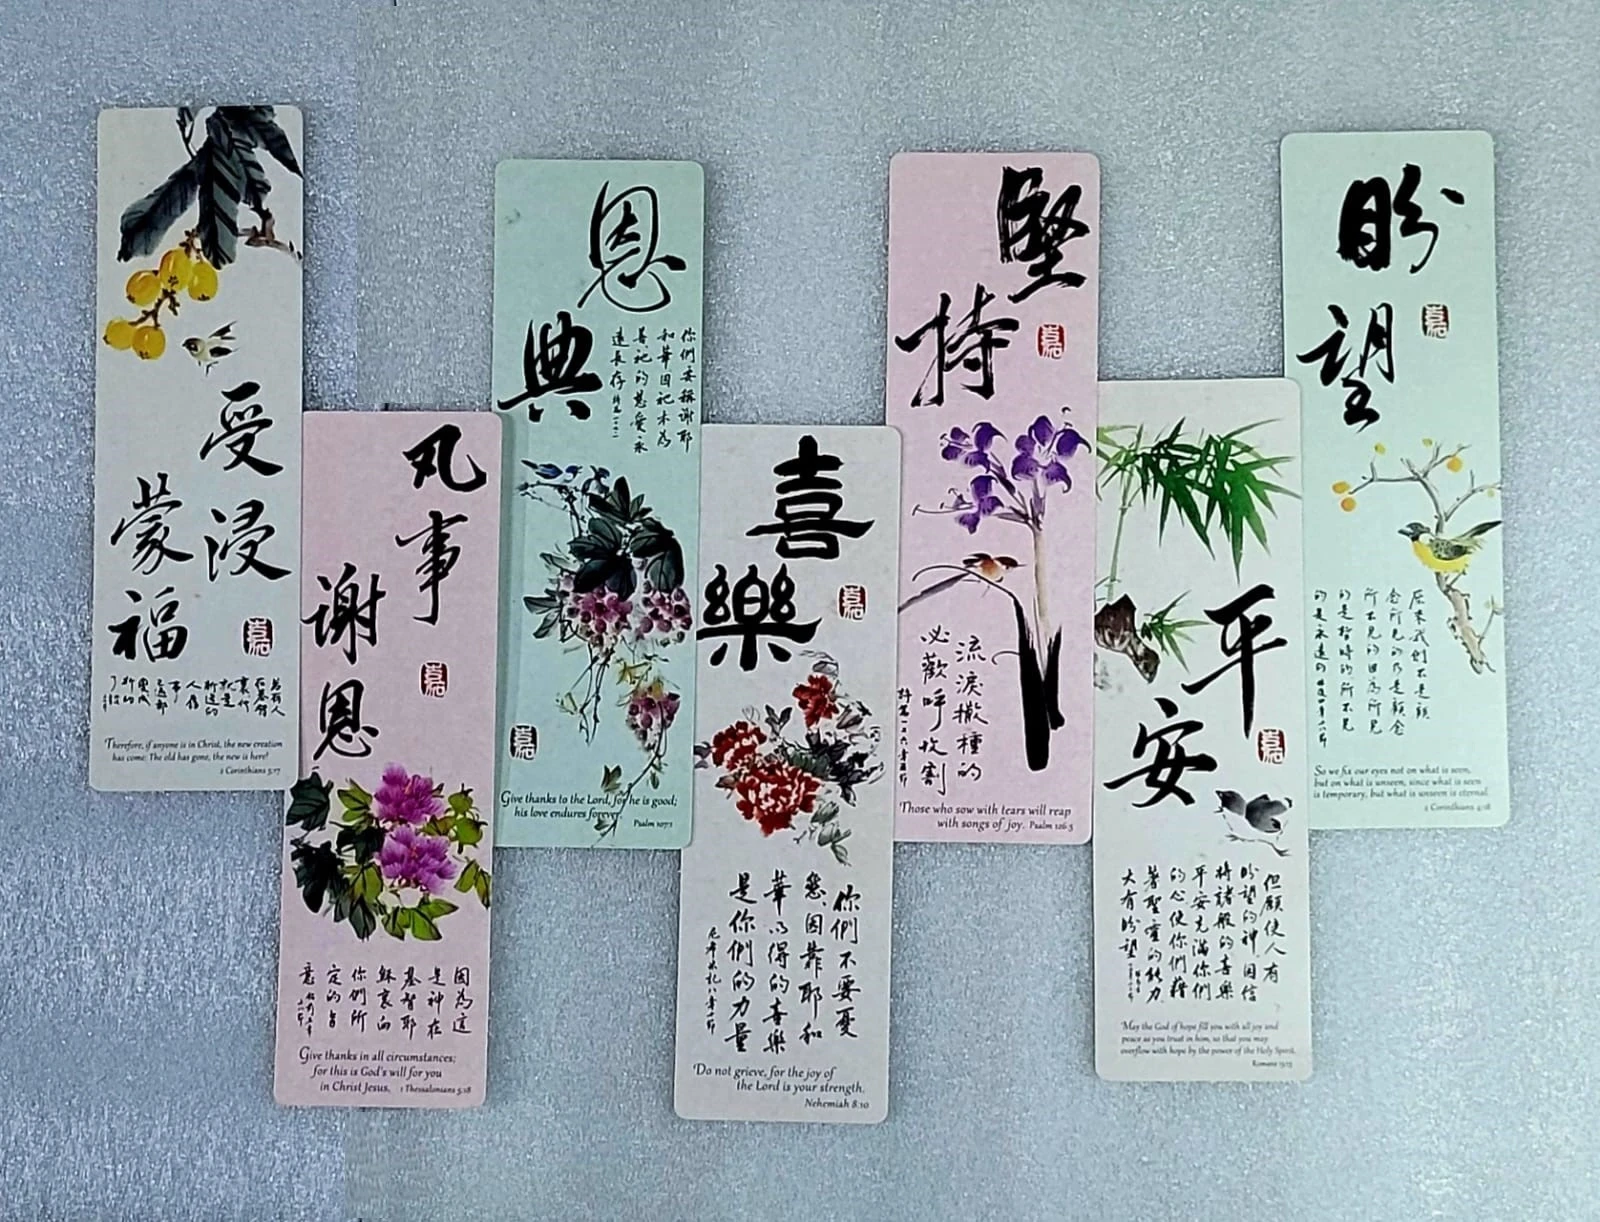 受浸
蒙福
若有人
在基督
Therefore, if anyone is in Christ, the new creation
has come: The old has gone, the new is here!
2 Corinthians 5:17
凡事
謝恩
因為這
是神在
基督耶
穌裏向
你們所
定的旨
意
Give thanks in all circumstances;
for this is God's will for you
in Christ Jesus. 1 Thessalonians 5:18
恩
典
你們要稱謝耶
和華因祂本為
善祂的慈愛永
遠長存
Give thanks to the Lord, for he is good;
his love endures forever.
Psalm 107:1
喜
樂
你們不要憂
愁因靠耶和
華以得的喜樂
是你們的力量
尼希米記八章十節
Do not grieve, for the joy of
the Lord is your strength.
Nehemiah 8:10
堅
持
流淚撒種的
必歡呼收割
詩篇一二六章五節
Those who sow with tears will reap
with songs of joy. Psalm 126:5
平
安
但願使人有
盼望的神因信
將諸般的喜樂
平安充滿你們
的心使你們藉
著聖靈的能力
大有盼望
May the God of hope fill you with all joy and
peace as you trust in him, so that you may
overflow with hope by the power of the Holy Spirit.
Romans 15:13
盼
望
原來我們不是顧
念所見的乃是顧念
所不見的因為所見
的是暫時的所不見
的是永遠的
So we fix our eyes not on what is seen,
but on what is unseen, since what is seen
is temporary, but what is unseen is eternal.
2 Corinthians 4:18